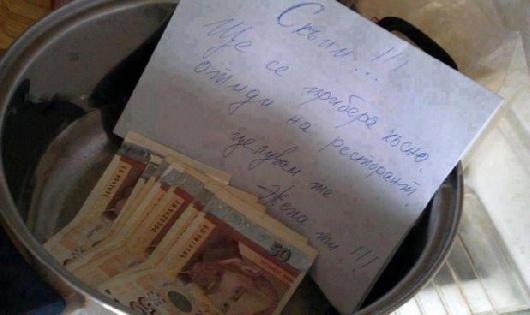 Скъпи...!!!
Ще се прибера късно.
отиди на ресторант!
целувам те
Жена ти!!!
50
50